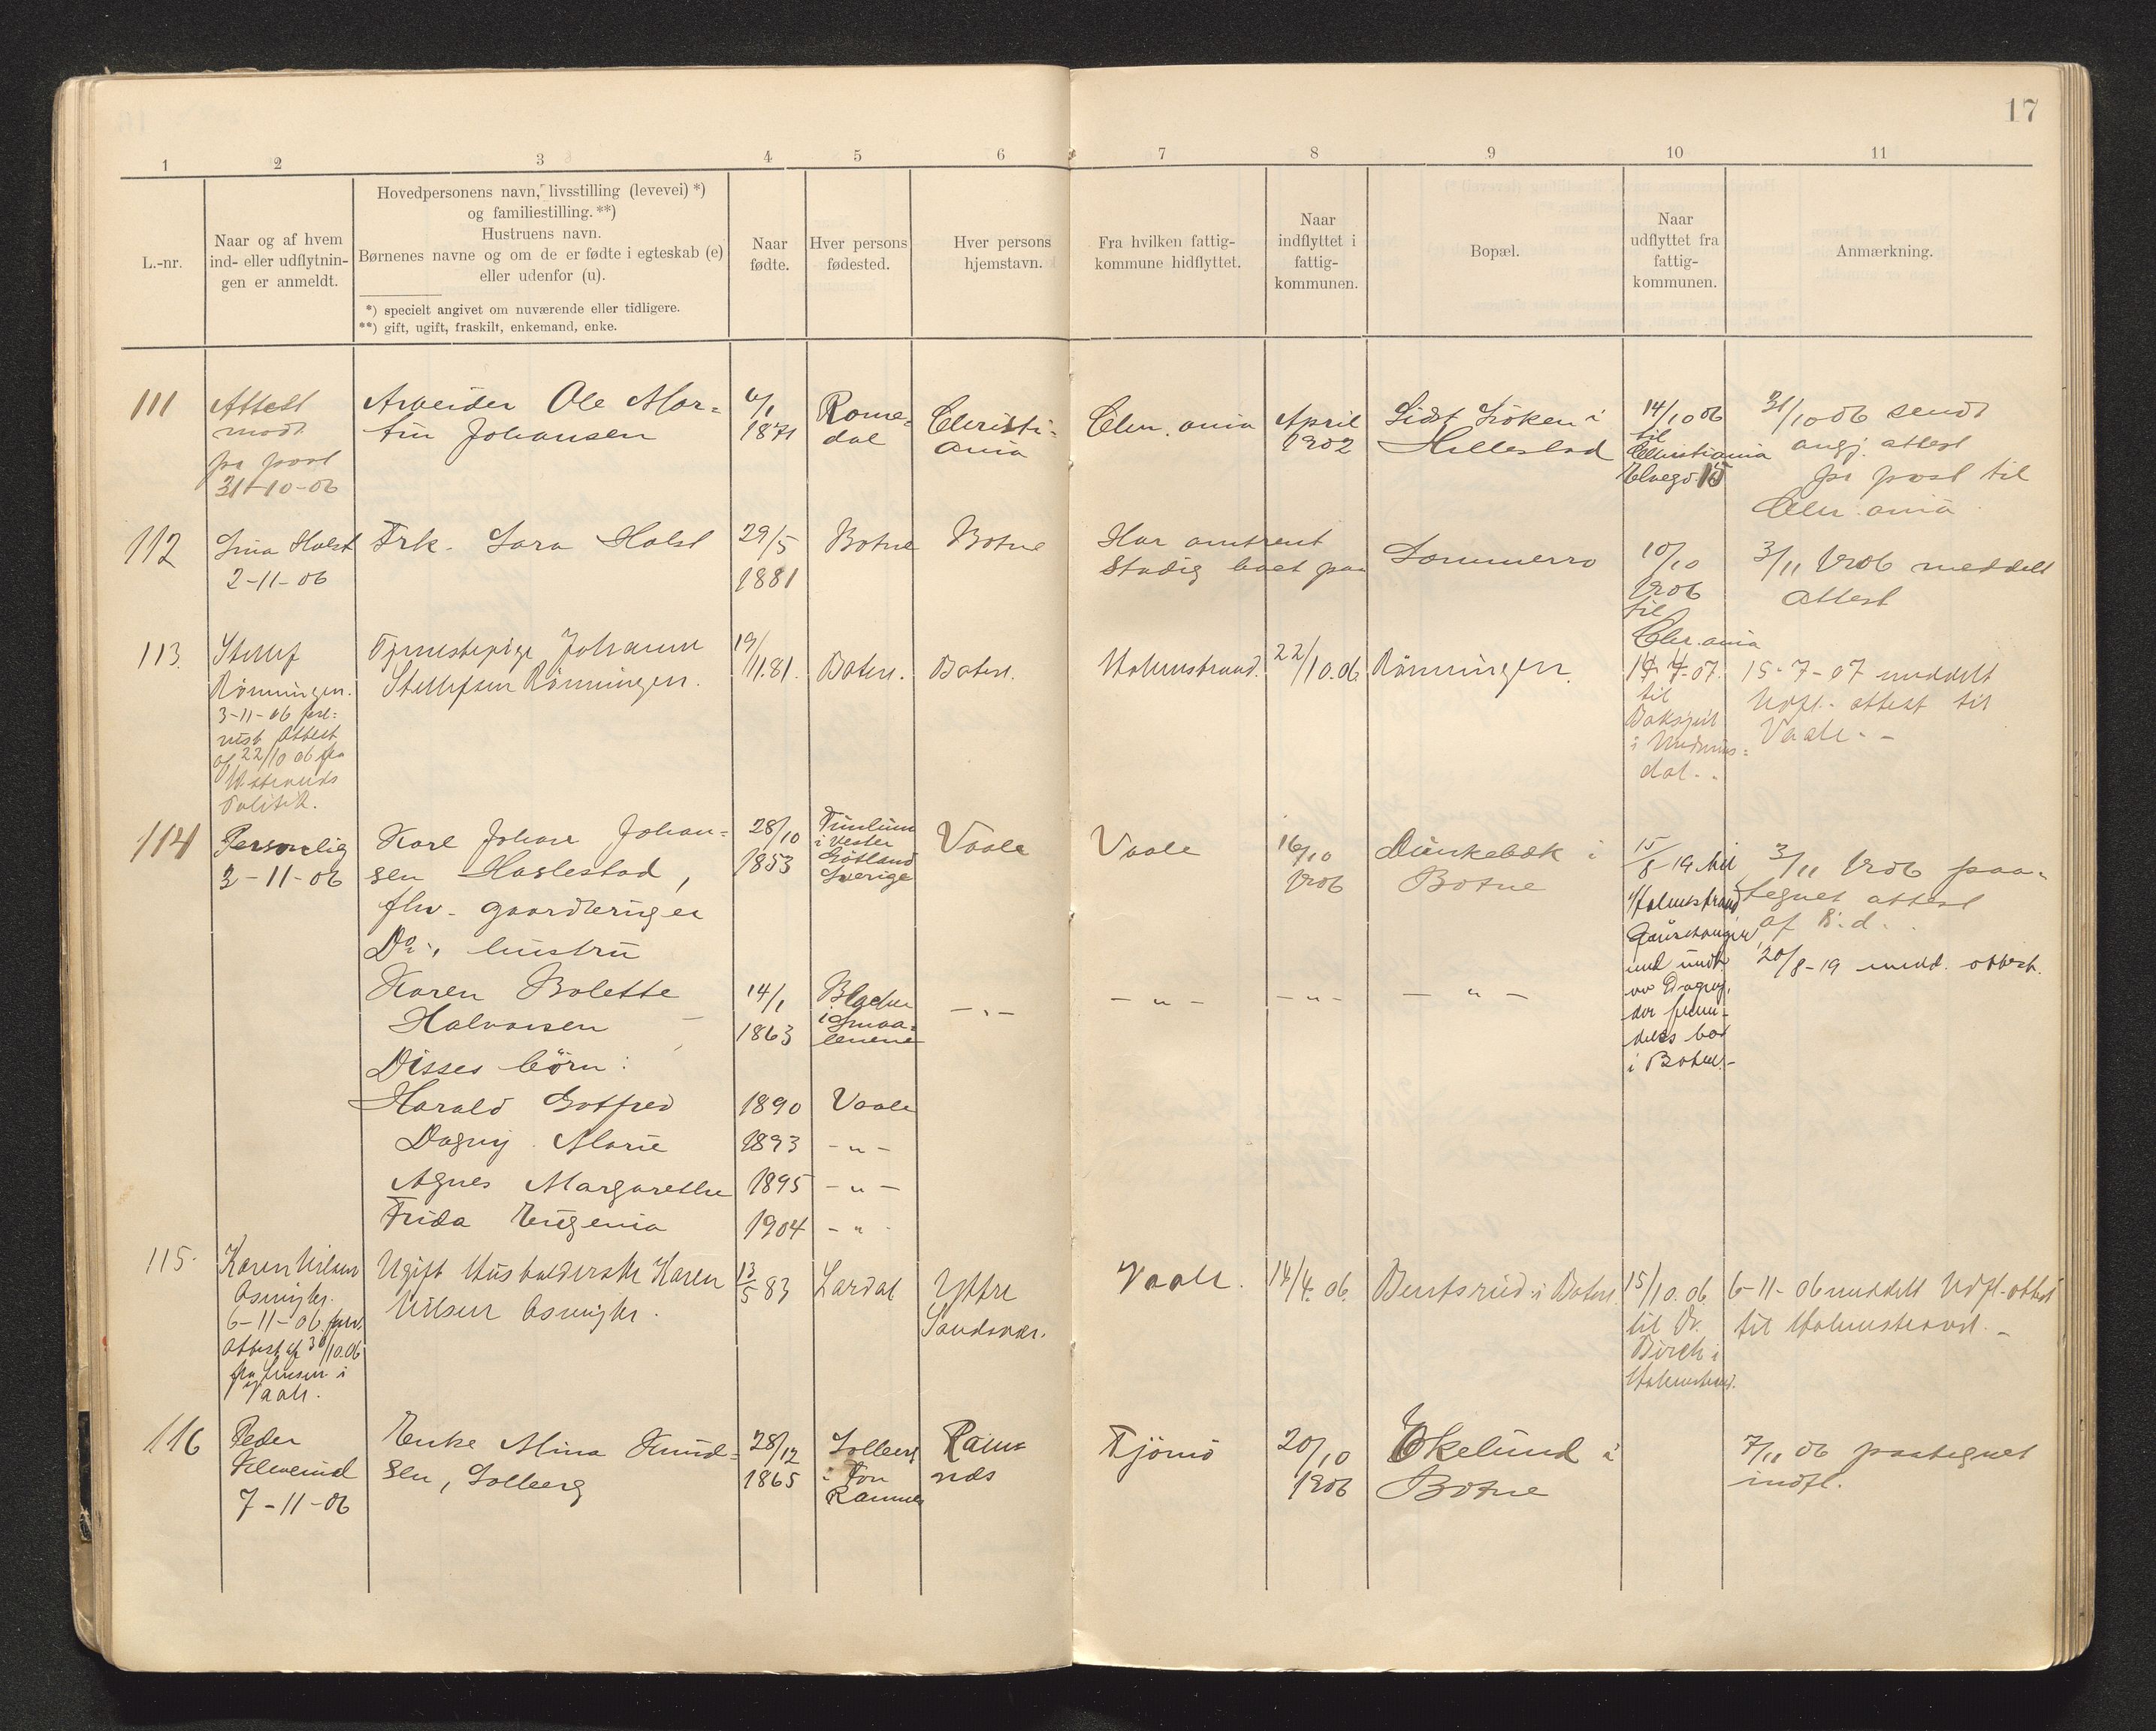 17
1
2
3
4
5
6
7
8
9
10
11
L.-nr.
Naar og af hvem
ind- eller udflytnin-
gen er anmeldt.
Hovedpersonens navn, livsstilling (levevei) *)
og familiestilling. **)
Hustruens navn.
Børnenes navne og om de er fødte i egteskab (e)
eller udenfor (u).
*) specielt angivet om nuværende eller tidligere.
**) gift, ugift, fraskilt, enkemand, enke.
Naar
fødte.
Hver persons
fødested.
Hver persons
hjemstavn.
Fra hvilken fattig-
kommune hidflyttet.
Naar
indflyttet i
fattig-
kommunen.
Bopæl.
Naar
udflyttet fra
fattig-
kommunen.
Anmærkning.
111
Attest
modt
pr post
31-10-06
Arbeider Ole Mar-
tin Johansen
6/1
1871
Rome-
dal
Christi-
ania
Chr. ania
April
1902
Sidst Löken i
Hillestad
14/10 06
til
Christiania
Elvegd. 15
31/10 06 sendt
angj. attest
pr post til
Chr. ania
112
Lina Holst
2-11-06
Frk. Lara Holst
29/5
1881
Botne
Botne
Har omtrent
Stadig boet paa
Sommerro
10/10
1906
til
Chr. ania
3/11 1906 meddelt
attest
113.
Rönningen.
3-11-06
attest
af 22/10 06 fra
Politik.
Tjenestepige Johanne
Rönningen.
19/
11.81.
Botne.
Botne.
Holmestrand.
22/10.06
Rönningen.
14-7-07.
til
i Undrums-
dal. -
15-7-07 meddelt
Udfl. attest til
Vaale. -
114
Personlig
3-11-06
Karl Johan Johan-
sen Haslestad,
fhv. gaardbruger
Do., hustru
Karen Bolette
Halvorsen
Disses börn:
Harald Gotfred
Dagny Marie
Agnes Margarethe
Frida Eugenia
28/10
1853
14/1
1863
1890
1893
1895
1904
i Vester
Götland
Sverige
i Smaa-
lenene
Vaale
- " -
- " -
- " -
Vaale
- " -
Vaale
- " -
16/10
1906
- " -
Dunkebæk i
Botne
- " -
15/
8-19 til
Holmestrand
i Botne. -
3/11 1906 paa-
tegnet attest
af s. d.
20/8-19 medd. attest.
115.
Karen Nilsen
6-11-06
Attest af 30/10.06
fra
i
Vaale.
Ugift Husholderske Karen
Nilsen
13/
5 83
Lardal
Yttre
Sandsvær.
Vaale.
14/4. 06.
Bentsrud i Botne.
15/10.06.
til Dr.
Birch i
Holmestrand.
6-11-06 meddelt Udfl. attest
til Holmestrand. -
116
Peder
7-11-06
Enke Mina Knud-
sen, Solberg
28/12
1865
Solberg
i Fon
Ramnes
Ram-
nes
Tjömö
20/10
1906
Ekelund i
Botne
7/11 06 paategnet
indfl.